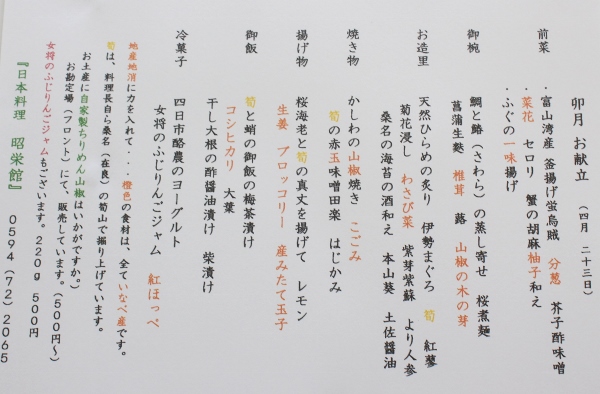 卯月 お献立 (四月 二十三日)
前菜
・富山湾産 釜揚げ蛍烏賊 分葱 芥子酢味噌
・菜花 セロリ 蟹の胡麻柚子和え
・ふぐの一味揚げ
御椀
鯛と鰆(さわら)の蒸し寄せ 桜煮麺
菖蒲生麩 椎茸 蕗 山椒の木の芽
お造里
天然ひらめの炙り 伊勢まぐろ 筍 紅蓼
菊花浸し わさび菜 紫芽紫蘇 より人参
桑名の海苔の酒和え 本山葵 土佐醤油
焼き物
かしわの山椒焼き こごみ
筍の赤玉味噌田楽 はじかみ
揚げ物
桜海老と筍の真丈を揚げて レモン
生姜 ブロッコリー 産みたて玉子
御飯
筍と蛸の御飯の梅茶漬け
コシヒカリ 大葉
干し大根の酢醤油漬け 柴漬け
冷菓子
四日市酪農のヨーグルト
女将のふじりんごジャム 紅ほっぺ
地産地消に力を入れて・・・橙色の食材は、全ていなべ産です。
筍は、料理長自ら桑名(在良)の筍山で掘り上げています。
お土産に自家製ちりめん山椒はいかがですか。
お勘定場(フロント)にて、販売しています。(500円~)
女将のふじりんごジャムもございます。220g 500円
『日本料理 昭栄館』 0594(72)2065